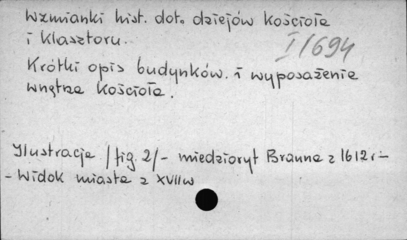 Wzmianki hist. dot. dziejów Kościoła
i Klasztoru.
I/694
Krótki opis budynków. i wyposażenie
wnętrza Kościoła.
Ilustracje /fig. 2/ - miedzioryt Brauna z 1612 r -
- Widok miasta z XVII w